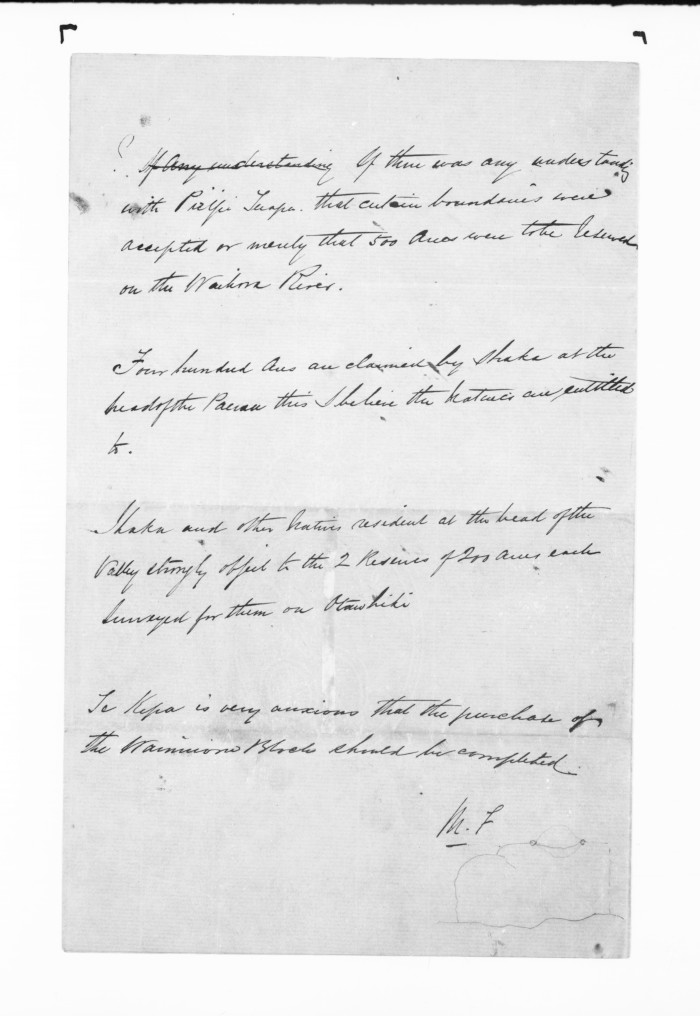 ? If any understanding If there was any understanding
with that certain boundaries were
accepted or merely that 500 Acres were to be Reserved
on the River.
Four hundred Acres are claimed by Ihaka at the
head of the this I believe the Natives are entitled
to.
Ihaka and other Natives resident at the head of the
Valley strongly object to the 2 Reserves of 200 acres each
Surveyed for them on Otawhiti
Te Kepa is very anxious that the purchase of
the Block should be completed.
M. F